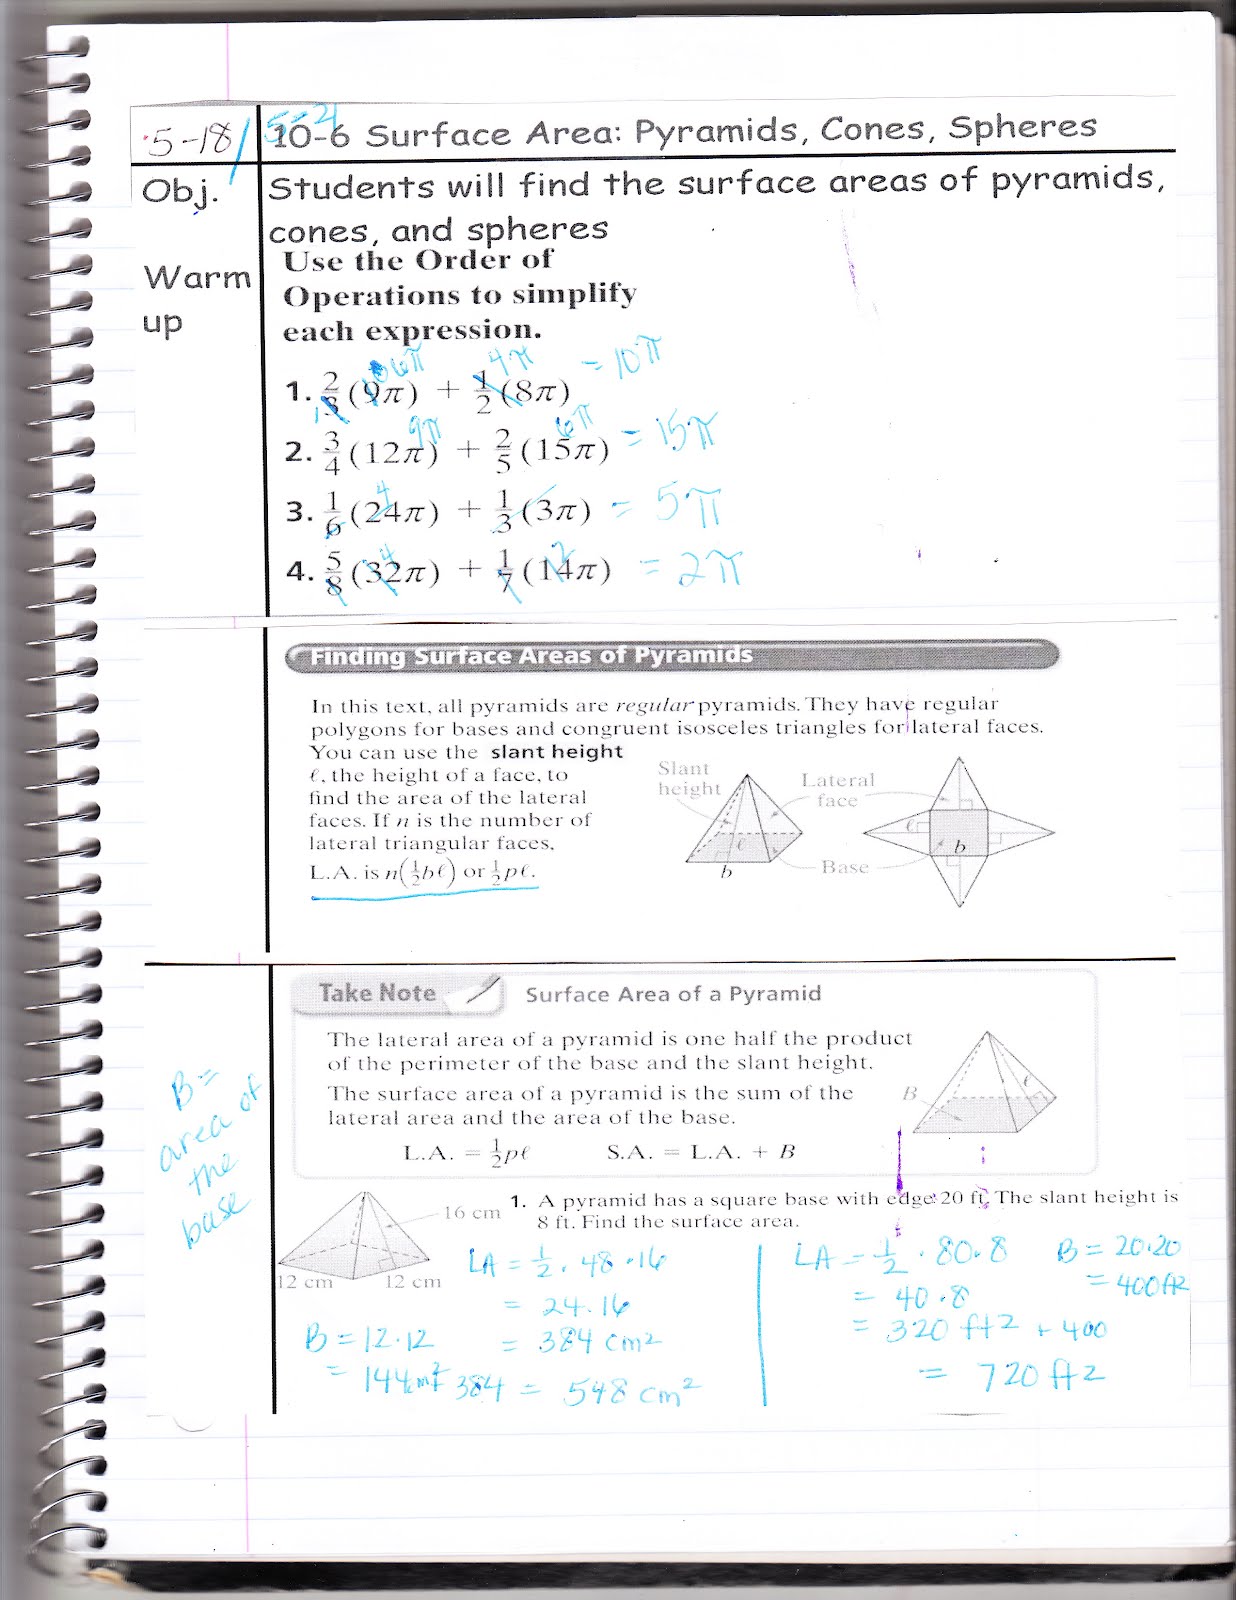 5-18/ 5-21
10-6 Surface Area: Pyramids, Cones, Spheres
Obj.
Students will find the surface areas of pyramids,
cones, and spheres
Warm
up
Use the Order of
Operations to simplify
each expression.
1. 2/3 (9π) + 1/2 (8π)
6π 4π = 10π
2. 3/4 (12π) + 2/5 (15π) = 15π
9π 6π
3. 1/6 (24π) + 1/3 (3π) = 5π
4
4. 5/8 (32π) + 1/7 (14π) = 2π
4 2
Finding Surface Areas of Pyramids
In this text, all pyramids are regular pyramids. They have regular
polygons for bases and congruent isosceles triangles for lateral faces.
You can use the slant height
ℓ, the height of a face, to
find the area of the lateral
faces. If n is the number of
lateral triangular faces,
L.A. is n(1/2 bℓ) or 1/2 pℓ.
Slant
height
Lateral
face
Base
ℓ
b
ℓ
b
Take Note
Surface Area of a Pyramid
The lateral area of a pyramid is one half the product
of the perimeter of the base and the slant height.
The surface area of a pyramid is the sum of the
lateral area and the area of the base.
L.A. = 1/2 pℓ S.A. = L.A. + B
B
ℓ
B =
area of
the
base
16 cm
12 cm 12 cm
1. A pyramid has a square base with edge 20 ft. The slant height is
8 ft. Find the surface area.
LA = 1/2 · 48 · 16
= 24 · 16
= 384 cm2
B = 12 · 12
= 144 cm2 + 384 = 548 cm2
LA = 1/2 · 80 · 8
= 40 · 8
= 320 ft2 + 400
= 720 ft2
B = 20·20
= 400 ft2